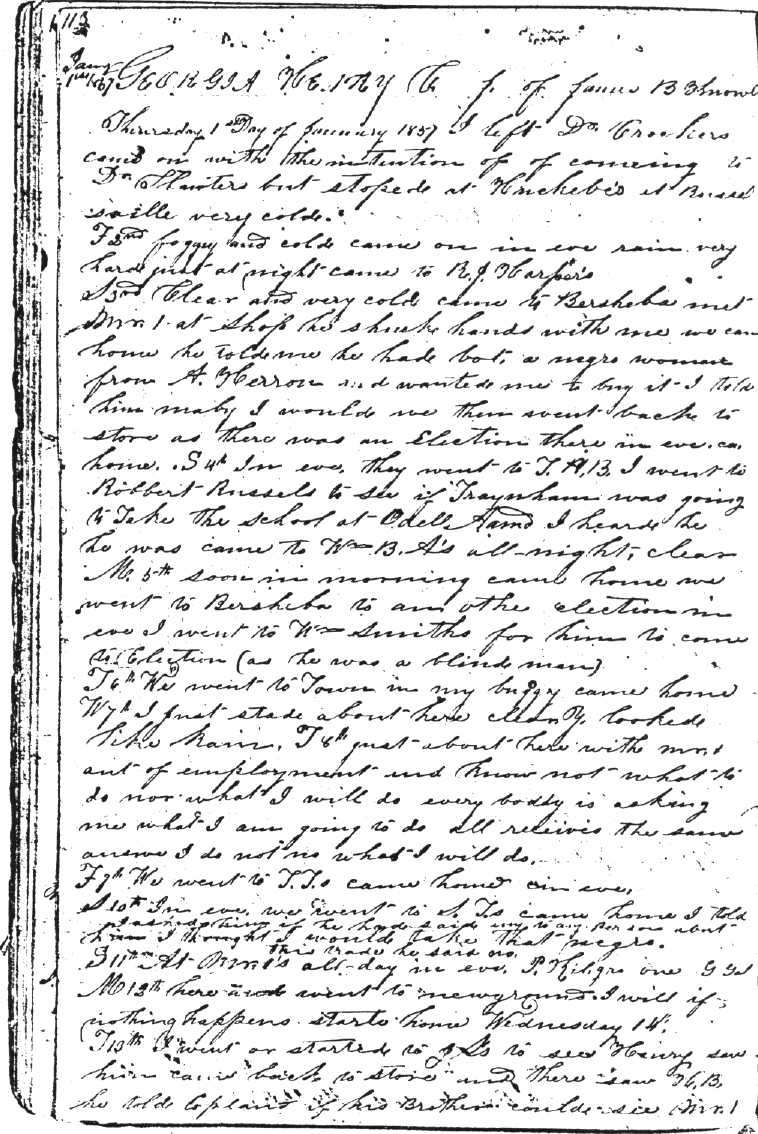 113
Jany 1st 1857 GEORGIA HENRY Co p. of James B
Thursday 1st Day of January 1857 I left Dr Crookers
came on with the intention of of comeing to
Dr but stopede at at Russel
sville very colde.
F 2nd foggey and colde came on in eve rain very
harde just at night came to R. J. Harper's
S 3rd Clear and very colde came to Bersheba met
at Shop he shucke hands with me we cam
home he tolde me he hade bot, a negro woman
from A. Herron and wantede me to buy it I told
him maby I woulde we then went back to
store as there was an Election there in eve. ca.
home. S 4th In eve, they went to T. A. B. I went to
Robbert Russels to see if Traynham was going
to Take the school at Odell I hearde he
he was came to Wm B. A's all-night, clear
M. 5th soon in morning came home we
went to Bersheba to an othe election in
eve I went to Wm Smiths for him to come
to Election (as he was a blinde man)
T 6th We went to Town in my buggy came home
W 7th I just stade about here clear lookede
like Rain, T 8th just about here with
out of employment and know not what to
do nor what I will do every boddy is asking
me what I am going to do all receives the same
answe I do not no what I will do.
F 9th We went to T. T.s came home in eve,
S 10th In eve, we went to S. T.s came home I told
asked him if he hade said any to any Person about
him I thought I woulde take that negro.
this trade he said no,
S 11th At all-day in eve, P. one
M 12th here and went to newground. I will if
nothing happens starte home Wednesday 14.
T 13th I went or started to to see Henry saw
him came back to store and there saw H. B.
he told if his Brother coulde see